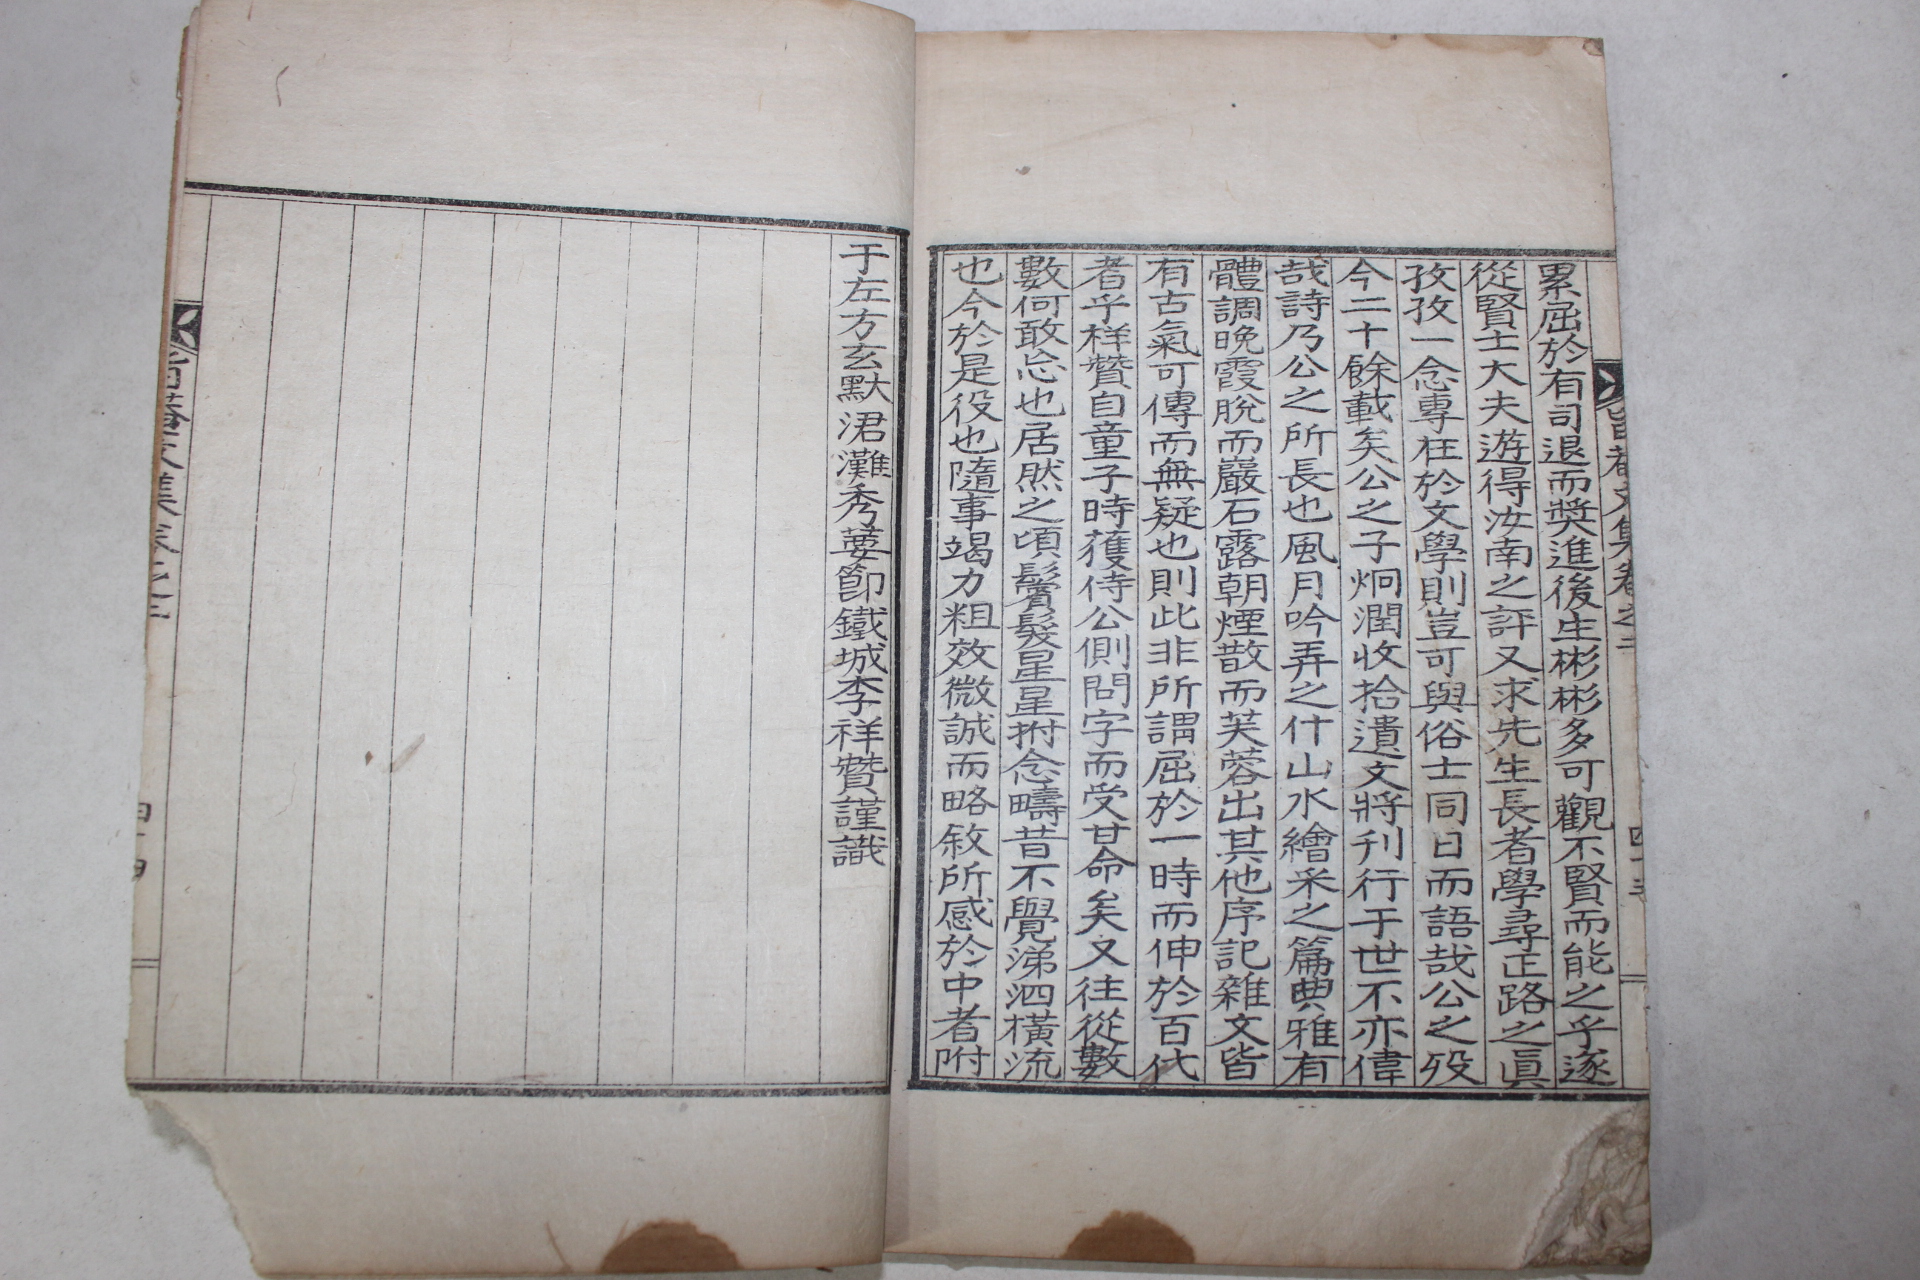 累屈於有司退而奬進後生彬彬多可觀不賢而能之乎逐
從賢士大夫遊得汝南之評又求先生長者學尋正路之眞
孜孜一念專在於文學則豈可與俗士同日而語哉公之歿
今二十餘載矣公之子炯潤收拾遺文將刊行于世不亦偉
哉詩乃公之所長也風月吟弄之什山水繪采之篇典雅有
體調晩霞脫而巖石露朝煙散而芙蓉出其他序記雜文皆
有古氣可傳而無疑也則此非所謂屈於一時而伸於百代
者乎祥贊自童子時獲侍公側問字而受甘命矣又往從數
數何敢忘也居然之頃鬢髮星星拊念疇昔不覺涕泗橫流
也今於是役也隨事竭力粗效微誠而略敘所感於中者附
于左方玄默涒灘秀葽節鐵城李祥贊謹識
菴文集卷之二
四十四